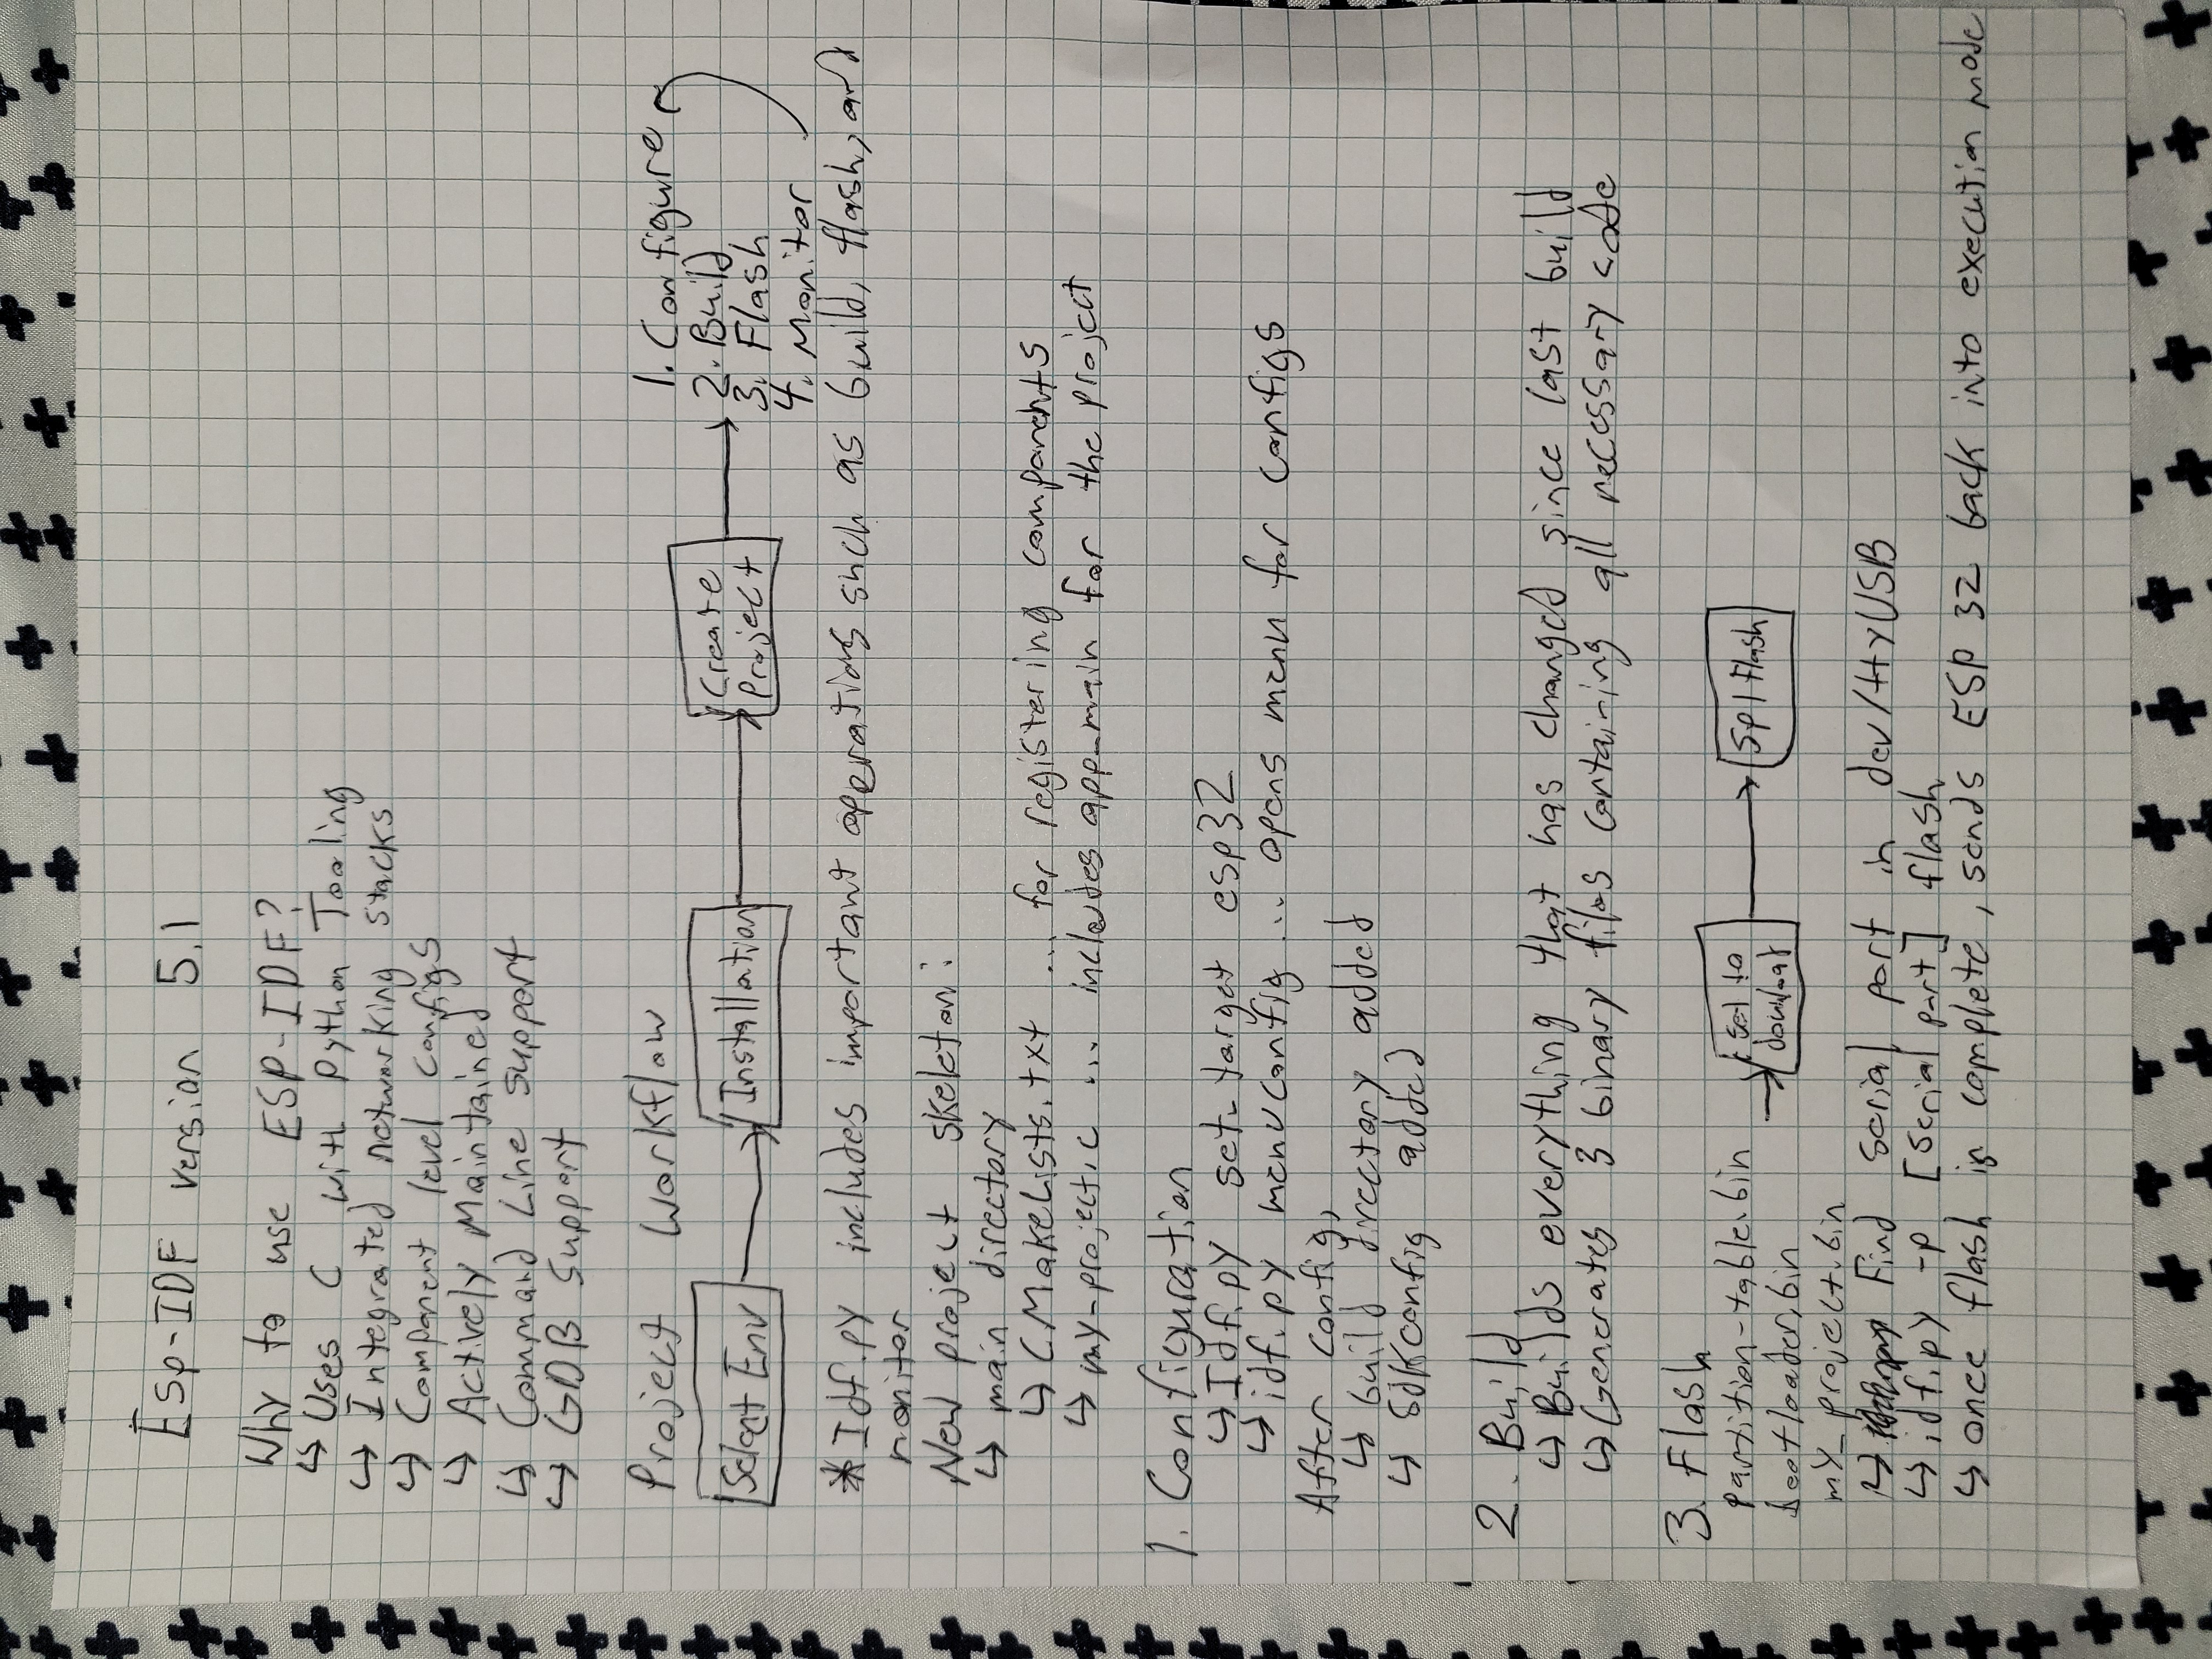 Esp-IDF version 5.1
Why to use ESP-IDF?
↳ Uses C with Python Tooling
↳ Integrated networking stacks
↳ Component level configs
↳ Actively Maintained
↳ Command Line support
↳ GDB Support
Project Workflow
Select Env
Installation
Create
Project
1. Configure
2. Build
3. Flash
4. Monitor
* Idf.py includes important operations such as build, flash, and
monitor
New project skeleton:
↳ main directory
↳ CMakeLists.txt ... for registering components
↳ my-project.c ... includes app-main for the project
1. Configuration
↳ Idf.py set-target esp32
↳ idf.py menuconfig ... opens menu for configs
After config,
↳ build directory added
↳ sdkconfig added
2. Build
↳ Builds everything that has changed since last build
↳ Generates 3 binary files containing all necessary code
3. Flash
partition-table.bin
bootloader.bin
my_project.bin
to
Spi flash
↳ Find serial port in dev/ttyUSB
↳ idf.py -p [serial port] flash
↳ once flash is complete, sends ESP 32 back into execution mode